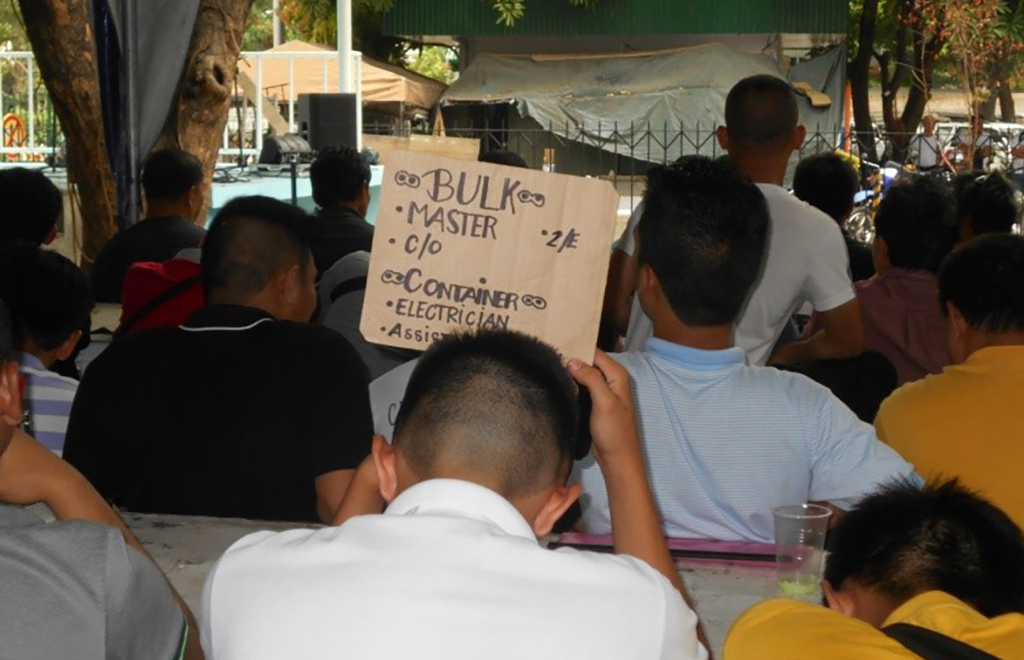 BULK
• MASTER
• C/O
• 2/E
CONTAINER
• ELECTRICIAN